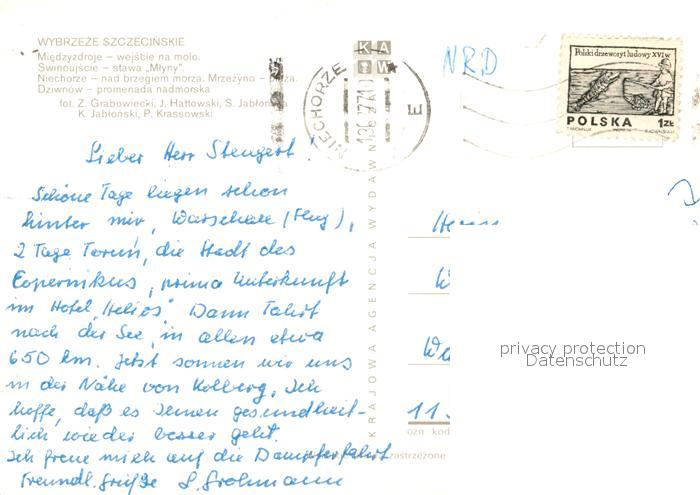 WYBRZEŻE SZCZECIŃSKIE
Międzyzdroje – wejście na molo.
Świnoujście – stawa „Młyny”.
Niechorze – nad brzegiem morza. Mrzeżyno – plaża.
Dziwnów – promenada nadmorska
fot. Z. Grabowiecki, J. Hattowski, S. Jabłońska
K. Jabłoński, P. Krassowski
KAW
NIECHORZE
E
NRD
Polski drzeworyt ludowy XVI w.
POLSKA 1ZŁ
Lieber Herr Stengert!
Schöne Tage liegen schon
hinter mir, Warschau (Flug),
2 Tage Toruń, die Stadt des
Copernikus, prima Unterkunft
im Hotel „Helios” Dann Fahrt
nach der See, in allem etwa
650 km. Jetzt sonnen wir uns
in der Nähe von Kolberg. Ich
hoffe, daß es Ihnen gesundheit-
lich wieder besser geht.
Ich freue mich auf die Dampferfahrt
Freundl. Grüße S. Grohmann
KRAJOWA AGENCJA WYDAWN
Herrn
W
Wa
11
ozn kod
zastrzeżone
privacy protection
Datenschutz